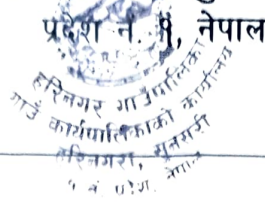 प्रदेश नं. १, नेपाल
हरिनगर गाउँपालिका
गाउँ कार्यपालिकाको कार्यालय
हरिनगरा, सुनसरी
१ नं. प्रदेश, नेपाल